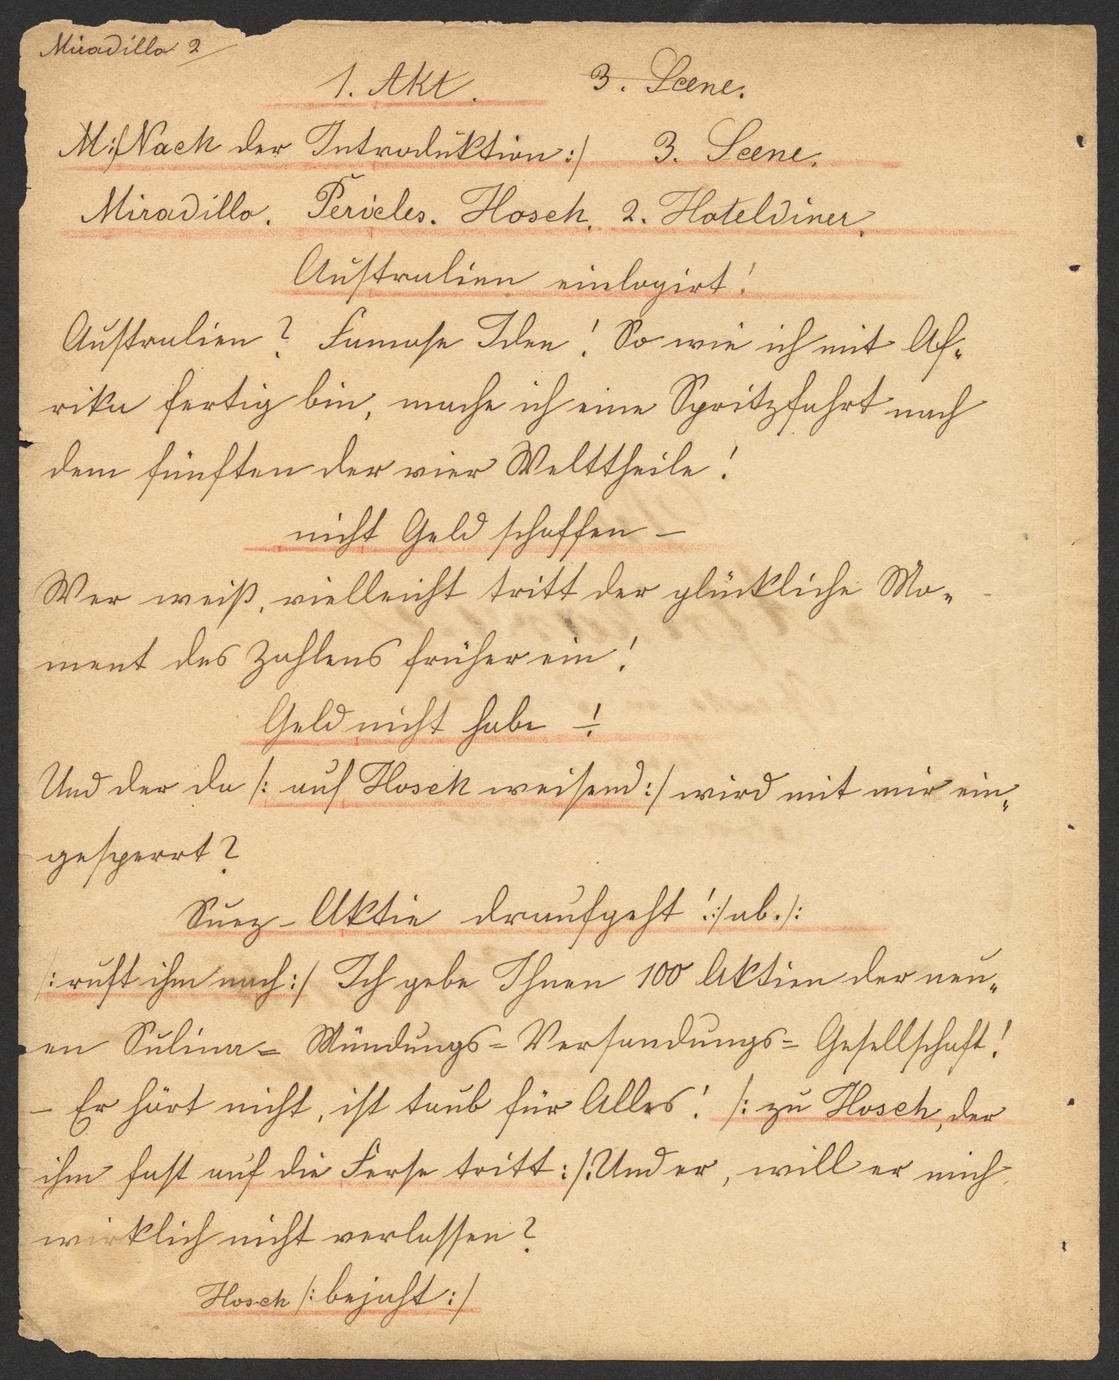 Miradillo 2
1. Akt. 3. Scene.
M:/Nach der Introduktion:/ 3. Scene.
Miradillo. Pericles. Hosch. 2. Hoteldiner.
Australien einlogirt!
Australien? Famose Idee! So wie ich mit Af-
rika fertig bin, mache ich eine Spritzfahrt nach
dem fünften der vier Welttheile!
nicht Geld schaffen –
Wer weiß, vielleicht tritt der glückliche Mo-
ment des Zahlens früher ein!
Geld nicht habe –!
Und der da /: auf Hosch weisend :/ wird mit mir ein-
gesperrt?
Suez-Aktie draufgeht! :/ab./:
/: ruft ihm nach :/ Ich gebe Ihnen 100 Aktien der neu-
en Sulina= Mündungs= Versandungs= Gesellschaft!
– Er hört nicht, ist taub für Alles! /: zu Hosch, der
ihm fast auf die Ferse tritt :/: Und er, will er mich
wirklich nicht verlassen?
Hosch /: bejaht :/